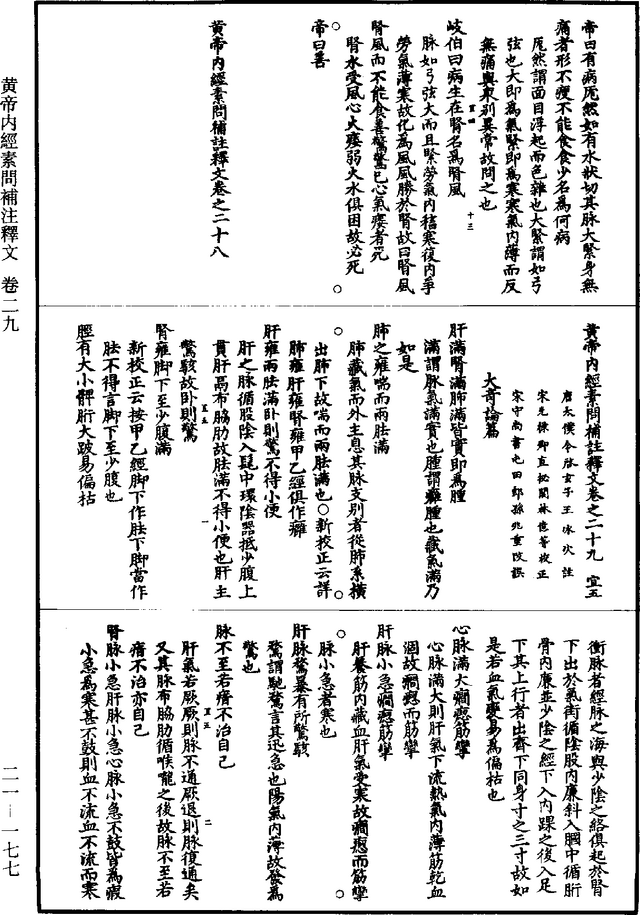 帝曰有病厖然如有水狀切其脉大緊身無
痛者形不瘦不能食食少名為何病
厖然謂面目浮起而色雜也大緊謂如弓
弦也大即為氣緊即為寒寒氣內薄而反
無痛與衆别異常故問之也
岐伯曰病生在腎名為腎風
宜四 十三
脉如弓弦大而且緊勞氣內稸寒復內爭
勞氣薄寒故化為風風勝於腎故曰腎風
腎風而不能食善驚驚已心氣痿者死
腎水受風心火痿弱火水俱困故必死
帝曰善
黄帝內經素問補註釋文卷之二十八
黄帝內經素問補註釋文卷之二十九 宜五
唐太僕令啟玄子王冰次註
宋光祿卿直秘閣林億等校正
宋守尚書屯田郎孫兆重改誤
大奇論篇
肝滿腎滿肺滿皆實即為腫
滿謂脉氣滿實也腫謂癰腫也藏氣滿乃
如是
肺之雍喘而兩胠滿
肺藏氣而外主息其脉支别者從肺系橫
出腋下故喘而兩胠滿也○新校正云詳
肺雍肝雍腎雍甲乙經俱作癰
肝雍兩胠滿卧則驚不得小便
肝之脉循股陰入髦中環陰器抵少腹上
貫肝鬲布脇肋故胠滿不得小便也肝主
驚駭故卧則驚
宜五 一
腎雍脚下至少腹滿
新校正云按甲乙經脚下作胠下脚當作
胠不得言脚下至少腹也
脛有大小髀䯒大跛易偏枯
衝脉者經脉之海與少陰之絡俱起於腎
下出於氣街循陰股內廉斜入膕中循䯒
骨內廉並少陰之經下入內踝之後入足
下其上行者出齊下同身寸之三寸故如
是若血氣變易為偏枯也
心脉滿大癇瘛筋攣
心脉滿大則肝氣下流熱氣內薄筋乾血
涸故癇瘛而筋攣
肝脉小急癇瘛筋攣
肝養筋內藏血肝氣受寒故癇瘛而筋攣
脉小急者寒也
肝脉騖暴有所驚駭
騖謂馳騖言其迅急也陽氣內薄故發為
驚也
脉不至若瘖不治自已
宜五 二
肝氣若厥厥則脉不通厥退則脉復通矣
又其脉布脇肋循喉嚨之後故脉不至若
瘖不治亦自已
腎脉小急肝脉小急心脉小急不鼓皆為瘕
小急為寒甚不鼓則血不流血不流而寒
黄帝內經素問補注釋文 卷二九
二一—一七七